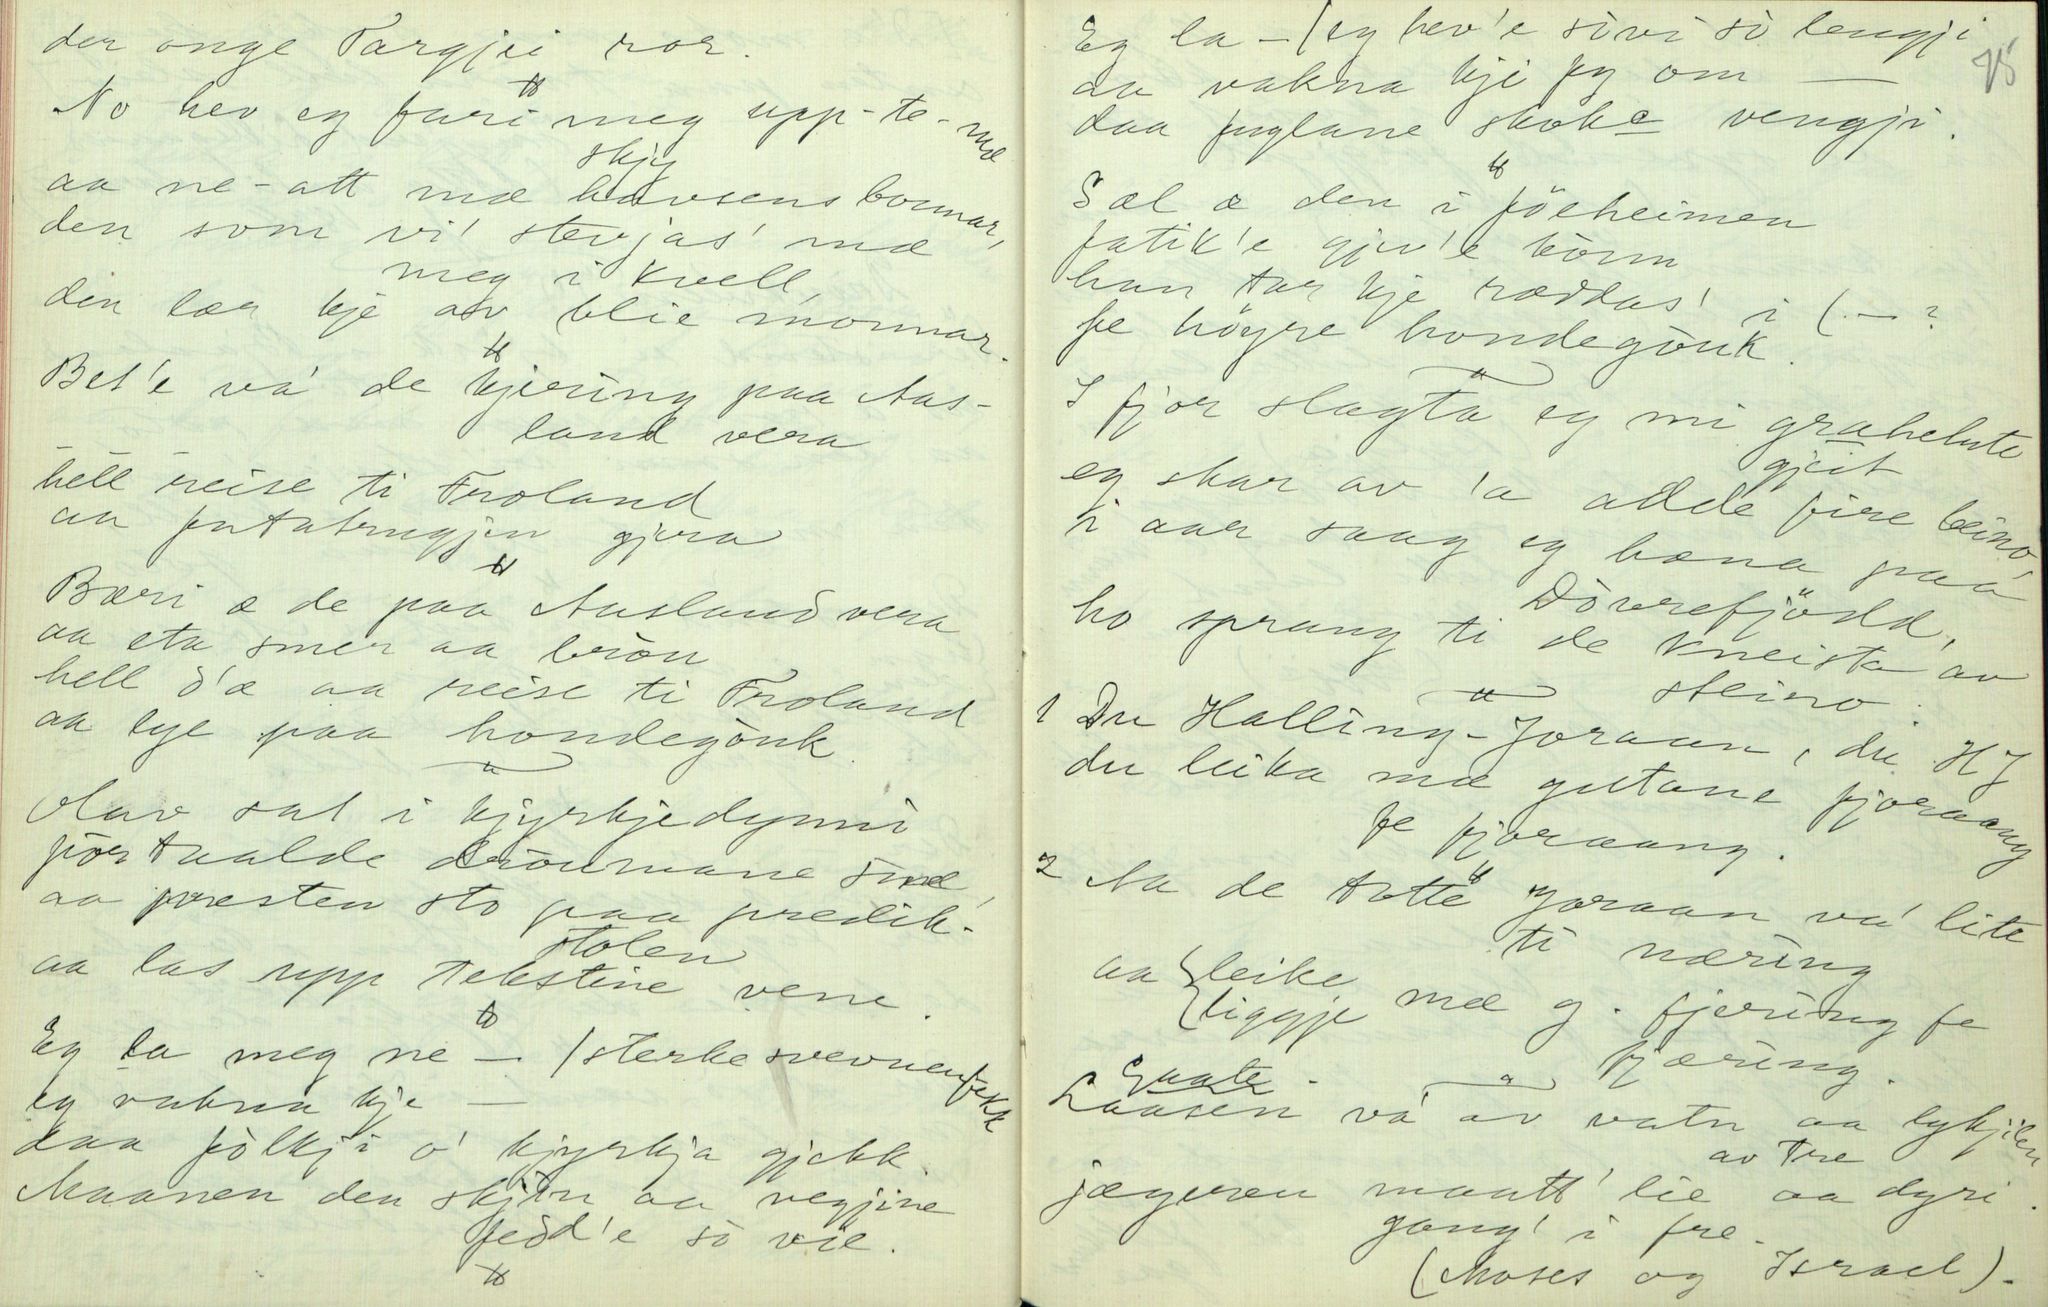 der onge Targjei ror.
No hev eg fari meg upp-te-mæ
skjy
aa ne-att mæ havsens bonnar,
den som vi' stevjas' mæ
meg i kvell,
den lær kje av blie monnar.
Bet'e va' de kjering paa Aas-
land vera
hell reise ti Froland
aa putatrugjen gjera
Bæri æ de paa Aasland vera
aa eta smer aa bròu
hell d'æ aa reise ti Froland
aa lye paa hondegòuk
Olav sat i kjyrkjedynni
fòrtaalde dròumane sine,
aa presten sto paa predik-
stolen
aa las upp tekstine vene.
Eg la meg ne — / sterke svevnen fekk
eg vakna kje —
daa fòlkji o' kjyrkja gjekk
Maanen den skjin aa vegjine
fedd'e sò vie.
75
Eg la — / eg hev'e sòvi sò lengji
aa vakna kje fy om —
daa fuglane skoke vengji.
Sæl æ den i föeheimen
fatik'e gjev'e kòrn
han tar kje ræddas' i ( — ?
fe högre hondegòuk.
I fjor slagta eg mi grahelute
gjeit
eg skar av 'a adde fire beino,
i aar saag eg hæna paa
Dòvrefjödd,
ho sprang ti de kneista av
steino.
1 Du Halling-Joraan, du HJ
du leika mæ gutane fjoraang
fe fjoraang.
2 Aa de totte Joraan va' lite
ti næring
aa { leike
liggje mæ g. fjering fe
fjæring.
Gaate.
Laasen va' av vatn aa lykjilen
av tre
jægeren maatt' lie aa dyri
gang' i fre.
(Moses og Israel).